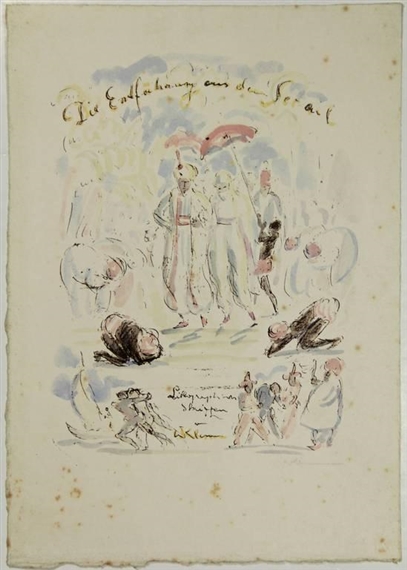 Die Entführung aus dem Serail
Lithographische
Skizzen